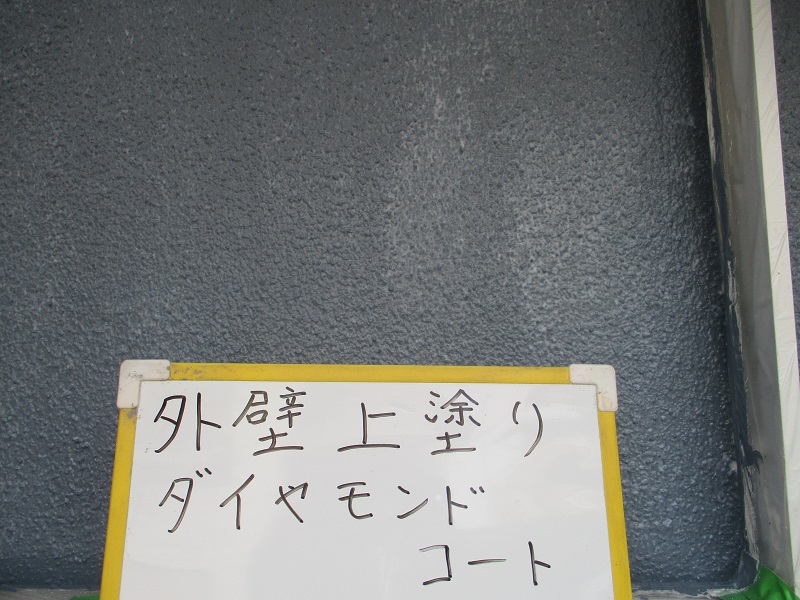 外壁上塗り
ダイヤモンド
コート